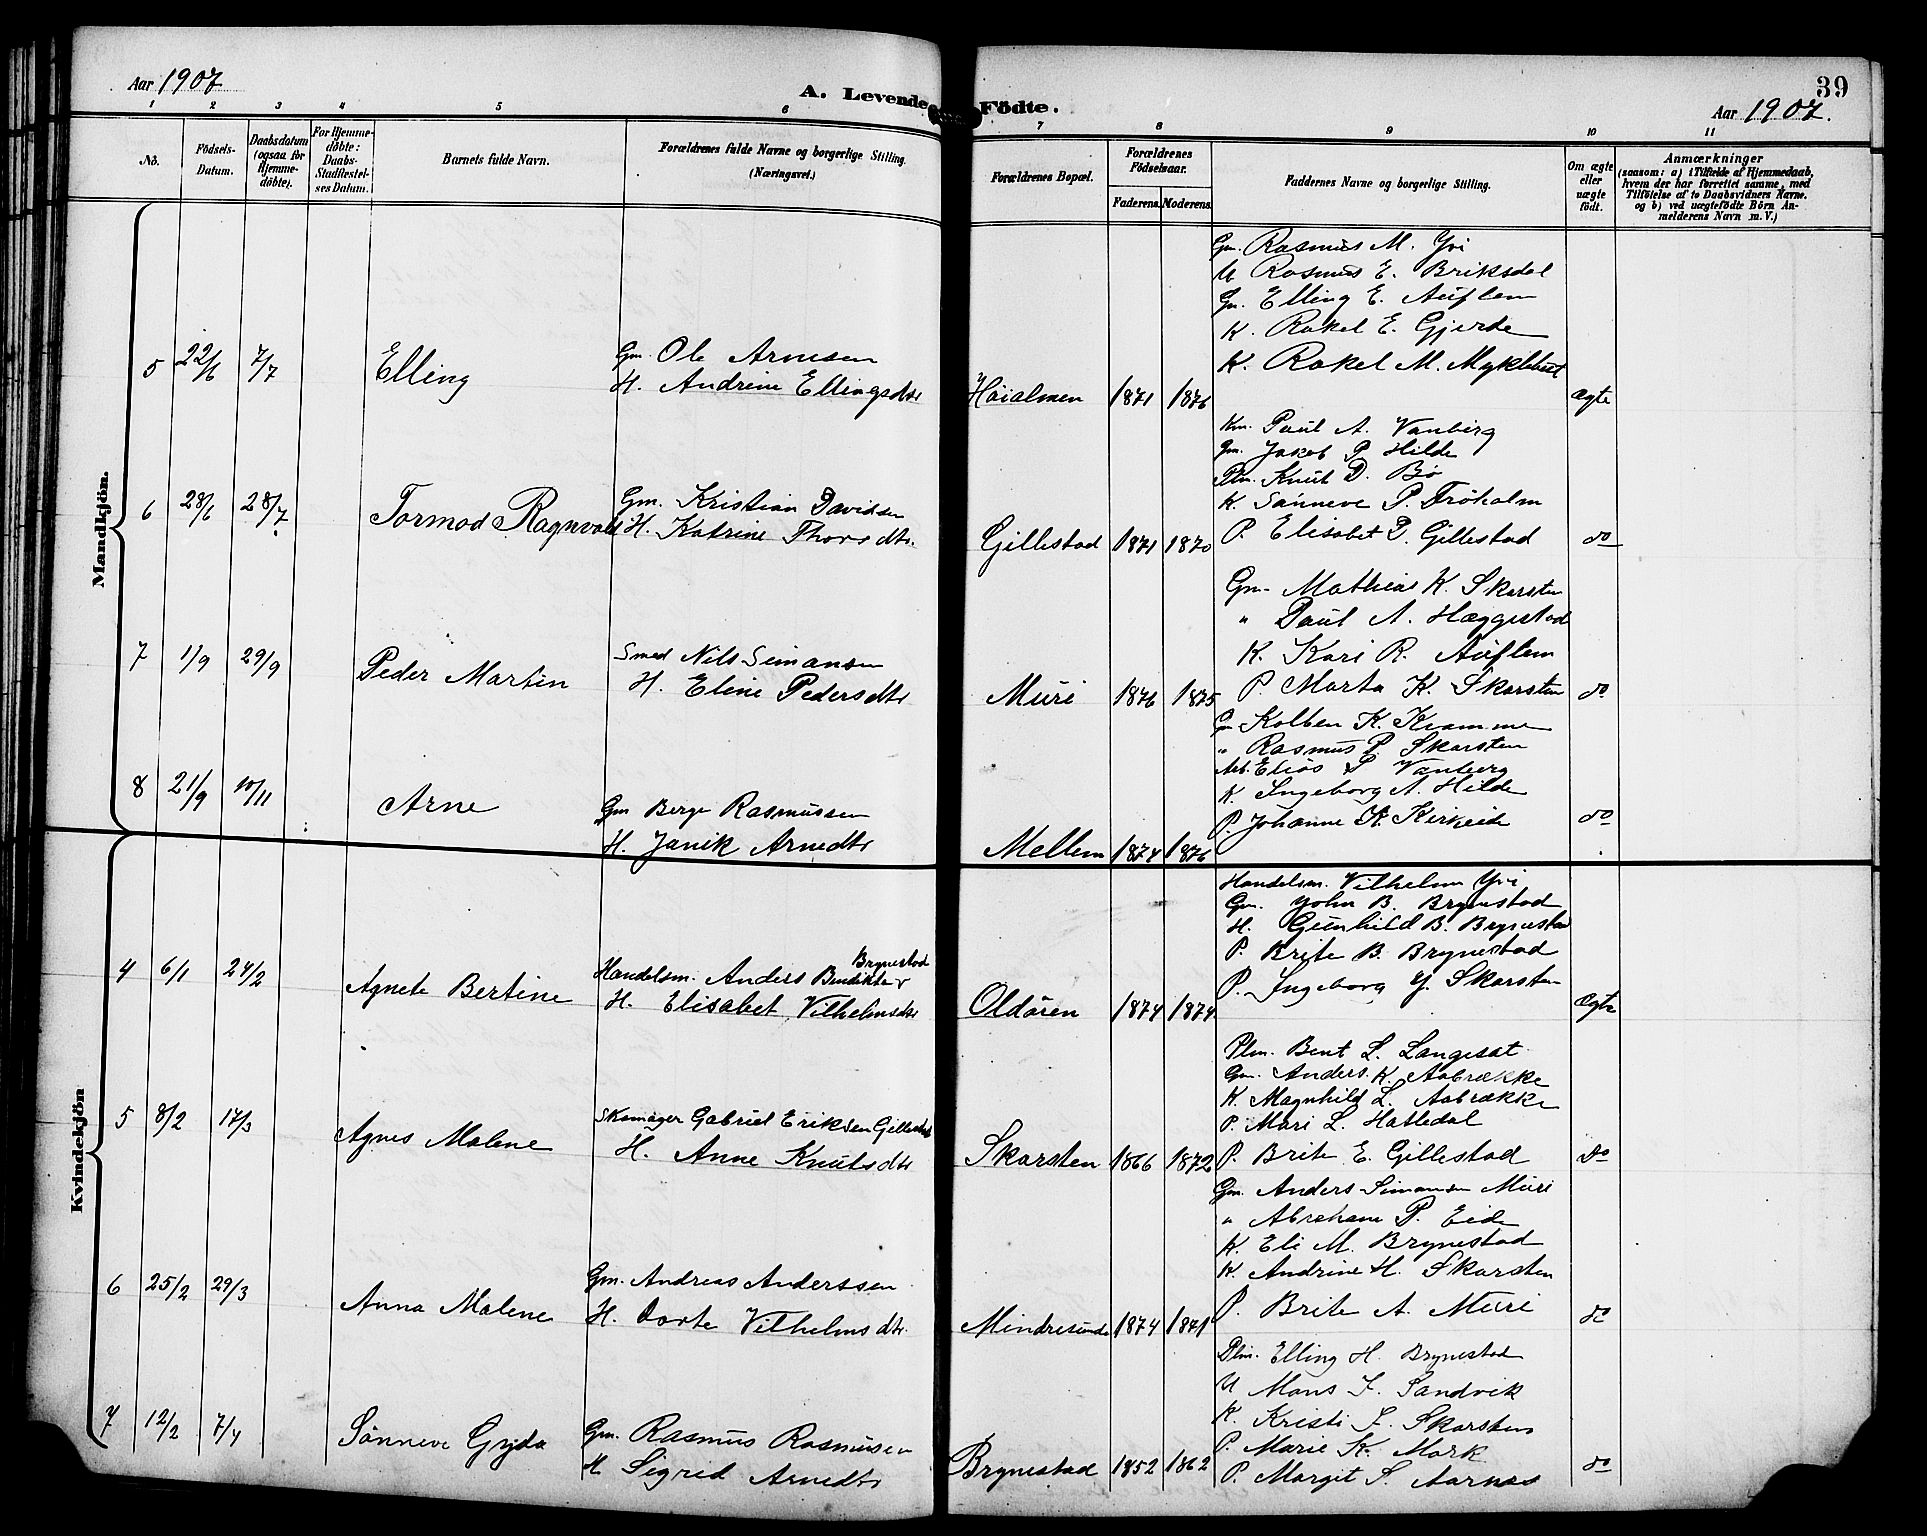 Aar 1907
A. Levende Födte.
39
Aar 1907.
1 2 3 4 5 6 7 8 9 10 11
No.
Födsels-Datum.
Daabsdatum (ogsaa for Hjemme-döbte).
For Hjemme-döbte: Daabs-Stadfæstel-ses Datum.
Barnets fulde Navn.
Forældrenes fulde Navne og borgerlige Stilling.
(Næringsvei.)
Forældrenes Bopæl.
Forældrenes Födselsaar.
Faderens. Moderens.
Faddernes Navne og borgerlige Stilling.
Om ægte eller uægte födt.
Anmærkninger
(saasom: a) i Tilfælde af Hjemmedaab,
hvem der har forrettet samme, med
Tilföielse af to Daabsvidners Navne.
og b) ved uægtefödte Börn An-
melderens Navn m. V.)
Mandkjön.
5 22/6 7/7 Elling
Gm. Ole Arnesen
H. Andrine Ellingsdtr
Höialmen 1871 1876
Gm. Rasmus M. Yri
U Rasmus E. Briksdal
Gm. Elling E. Auflem
K. Rakel E. Gjerde
K. Rakel M. Myklebust
ægte
6 28/6 28/7 Tormod Ragnvald
Gm. Kristian Davidsen
H. Katrine Thorsdtr.
Gillestad 1871 1870
Km. Paul A. Vanberg
Gm. Jakob P. Hilde
Plm. Knut D. Bö
K. Sönneve P. Fröholm
P. Elisabet D. Gillestad
do
7 1/9 29/9 Peder Martin
Smed Nils Simonsen
H. Eline Pedersdtr
Muri 1876 1875
Gm. Mathias K. Skarsten
" Paul A. Hæggestad
K. Kari R. Auflem
P. Marta K. Skarsten
do
8 21/9 10/11 Arne
Gm Berge Rasmussen
H. Janik Arnedtr
Mellem 1874 1876
Gm Kolben K. Kvamme
" Rasmus P. Skarsten
Arb. Elias S. Vanberg
K. Ingeborg A. Hilde
P. Johanne K. Kirkeide
do
Kvindekjön
4 6/1 24/2 Agnete Bertine
Brynestad
Handelsm. Anders Bendikter
H. Elisabet Vilhelmsdtr
Oldören 1874 1874
Handelsm. Vilhelm Yri
Gm. John B. Brynestad
H. Gunhild B. Brynestad
P. Brite B. Brynestad
P. Ingeborg J. Skarsten
ægte
5 8/2 17/3 Agnes Malene
Skomager Gabriel Eriksen Gillestad
H. Anne Knutsdtr
Skarsten 1866 1872
Plm. Bent L. Langesæt
Gm. Anders K. Aabrække
K. Magnhild L. Aabrække
P. Mari L. Hatledal
P. Brite E. Gillestad
do
6 25/2 29/3 Anna Malene
Gm. Andreas Anderssen
H. Dorte Vilhelmsdtr.
Mindresunde 1874 1871
Gm. Anders Simonsen Muri
" Abraham P. Eide
K. Eli M. Brynestad
K. Andrine H. Skarsten
P. Brite A. Muri
do
7 12/2 7/4 Sönneve Gyda
Gm. Rasmus Rasmusen
H Sigrid Arnedtr
Brynestad 1852 1862
Plm. Elling H. Brynestad
U Mons J. Sandvik
K. Kristi J. Skarsten
P. Marie K. Mork
P. Margit S. Aarnes
do